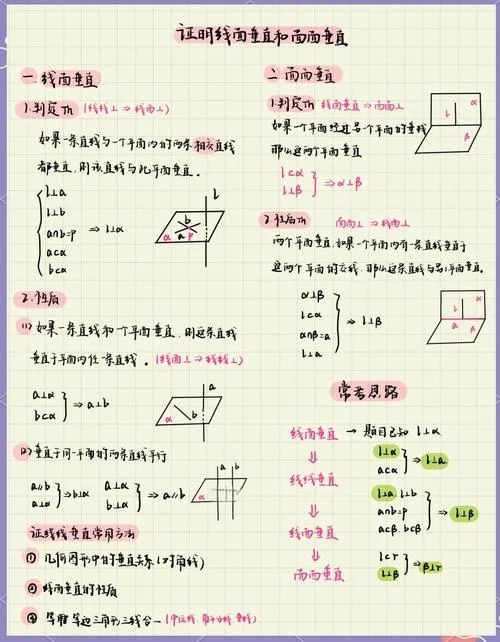 证明线面垂直和面面垂直
一.线面垂直
1.判定Th (线线⊥⇒线面⊥)
如果一条直线与一个平面内的两条相交直线
都垂直,则该直线与此平面垂直。
l⊥a
l⊥b
a∩b=p ⇒ l⊥α
a⊂α
b⊂α
l
b
α a p
2.性质
(1)如果一条直线和一个平面垂直,则这条直线
垂直于平面内任一条直线。(线面⊥⇒线线⊥)
a⊥α
b⊂α
⇒ a⊥b
a
α b
(2)垂直于同一平面的两条直线平行
a∥b
a⊥α
⇒b⊥α
a⊥α
b⊥α
⇒ a∥b
a b
α
证线线垂直常用方法
① 几何图形中的垂直关系(对角线)
② 线面垂直的性质
③ 等腰等边三角形三线合一(中位线,角平分线,垂线)
二.面面垂直
1.判定Th 线面垂直⇒面面⊥
如果一个平面经过另一个平面的垂线
那么这两个平面垂直
l⊂α
l⊥β
⇒α⊥β
l α
β
2.性质Th 面面⊥⇒线面⊥
两个平面垂直,如果一个平面内有一条直线垂直于
这两个平面的交线,那么这条直线与另1平面垂直。
α⊥β
l⊂α
α∩β=a
l⊥a
⇒ l⊥β
l α
a β
常考思路
线面垂直 → 题目已知 l⊥α
⇓
线线垂直
l⊥α
a⊂α
⇒ l⊥a
⇓
线面垂直
l⊥a, l⊥b
a∩b=p
a⊂β, b⊂β
⇒ l⊥β
⇓
面面垂直
l⊂r
l⊥β
⇒ β⊥r